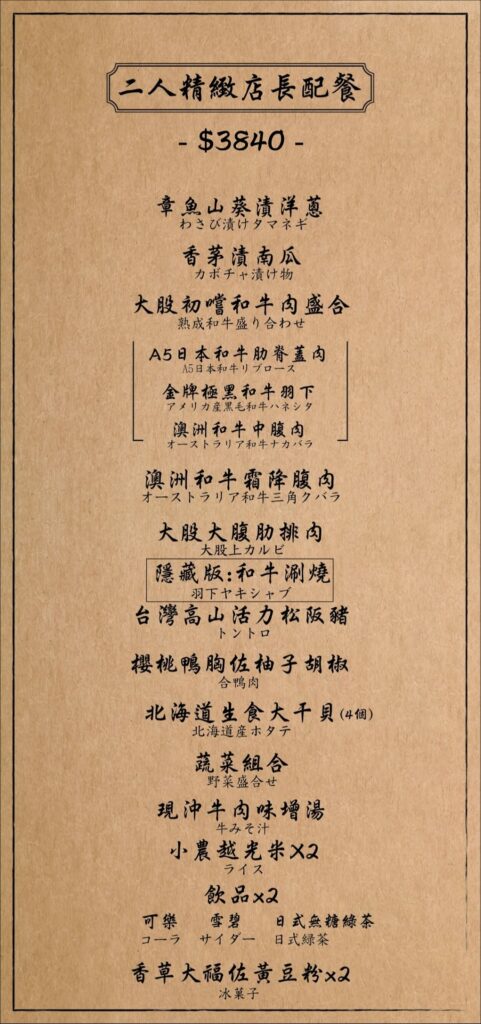 二人精緻店長配餐
- $3840 -
章魚山葵漬洋蔥
わさび漬けタマネギ
香茅漬南瓜
カボチャ漬け物
大股初嚐和牛肉盛合
熟成和牛盛り合わせ
A5日本和牛肋脊蓋肉
A5日本和牛リブロース
金牌極黑和牛羽下
アメリカ産黒毛和牛ハネシタ
澳洲和牛中腹肉
オーストラリア和牛ナカバラ
澳洲和牛霜降腹肉
オーストラリア和牛三角クバラ
大股大腹肋排肉
大股上カルビ
隱藏版:和牛涮燒
羽下ヤキシャブ
台灣高山活力松阪豬
トントロ
櫻桃鴨胸佐柚子胡椒
合鴨肉
北海道生食大干貝(4個)
北海道産ホタテ
蔬菜組合
野菜盛合せ
現沖牛肉味增湯
牛みそ汁
小農越光米X2
ライス
飲品x2
可樂 雪碧 日式無糖綠茶
コーラ サイダー 日式緑茶
香草大福佐黃豆粉x2
冰菓子